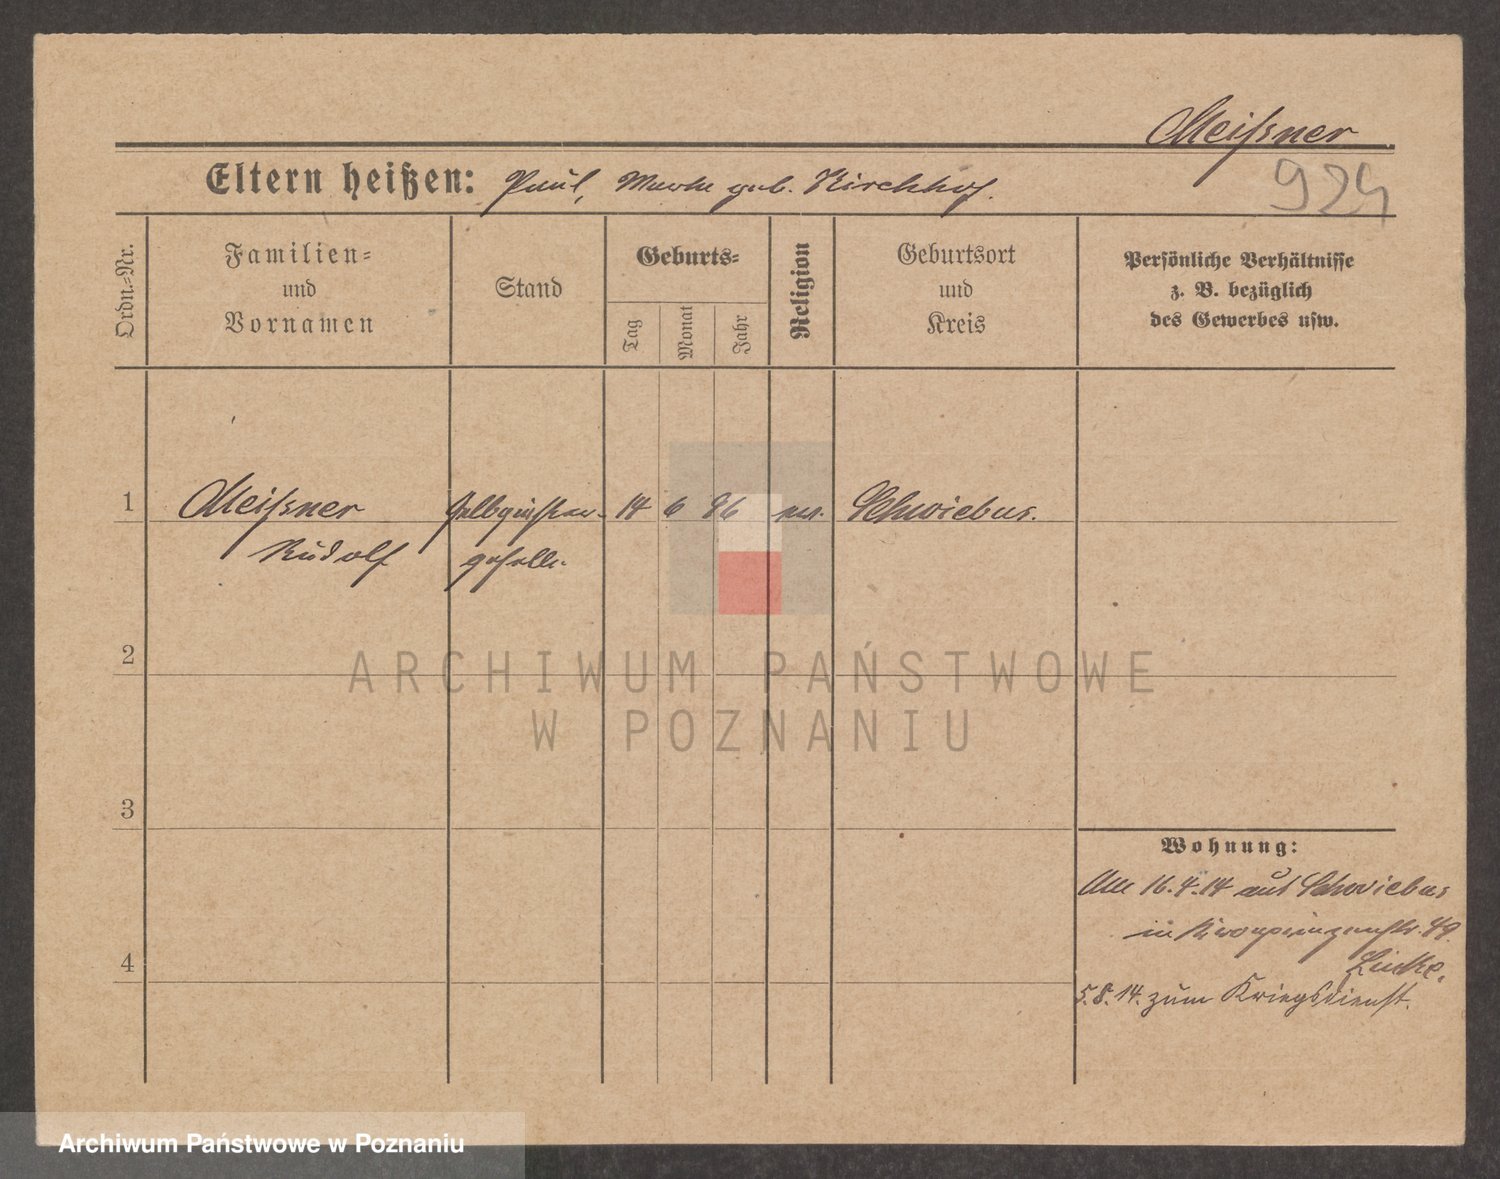 Meißner
924
Eltern heißen: Paul, geb. Kirchhof.
Ordn.=Nr.
Familien=
und
Vornamen
Stand
Geburts=
Tag
Monat
Jahr
Religion
Geburtsort
und
Kreis
Persönliche Verhältnisse
z. B. bezüglich
des Gewerbes usw.
1
Meißner
Rudolf
Gelbgießer-
geselle.
14 6 96 ev. Schwiebus.
2
3
4
Wohnung:
16.4.14 aus Schwiebus
in Kronprinzenstr. 49.
Linke.
5.8.14. zum Kriegsdienst.
ARCHIWUM PAŃSTWOWE
W POZNANIU
Archiwum Państwowe w Poznaniu